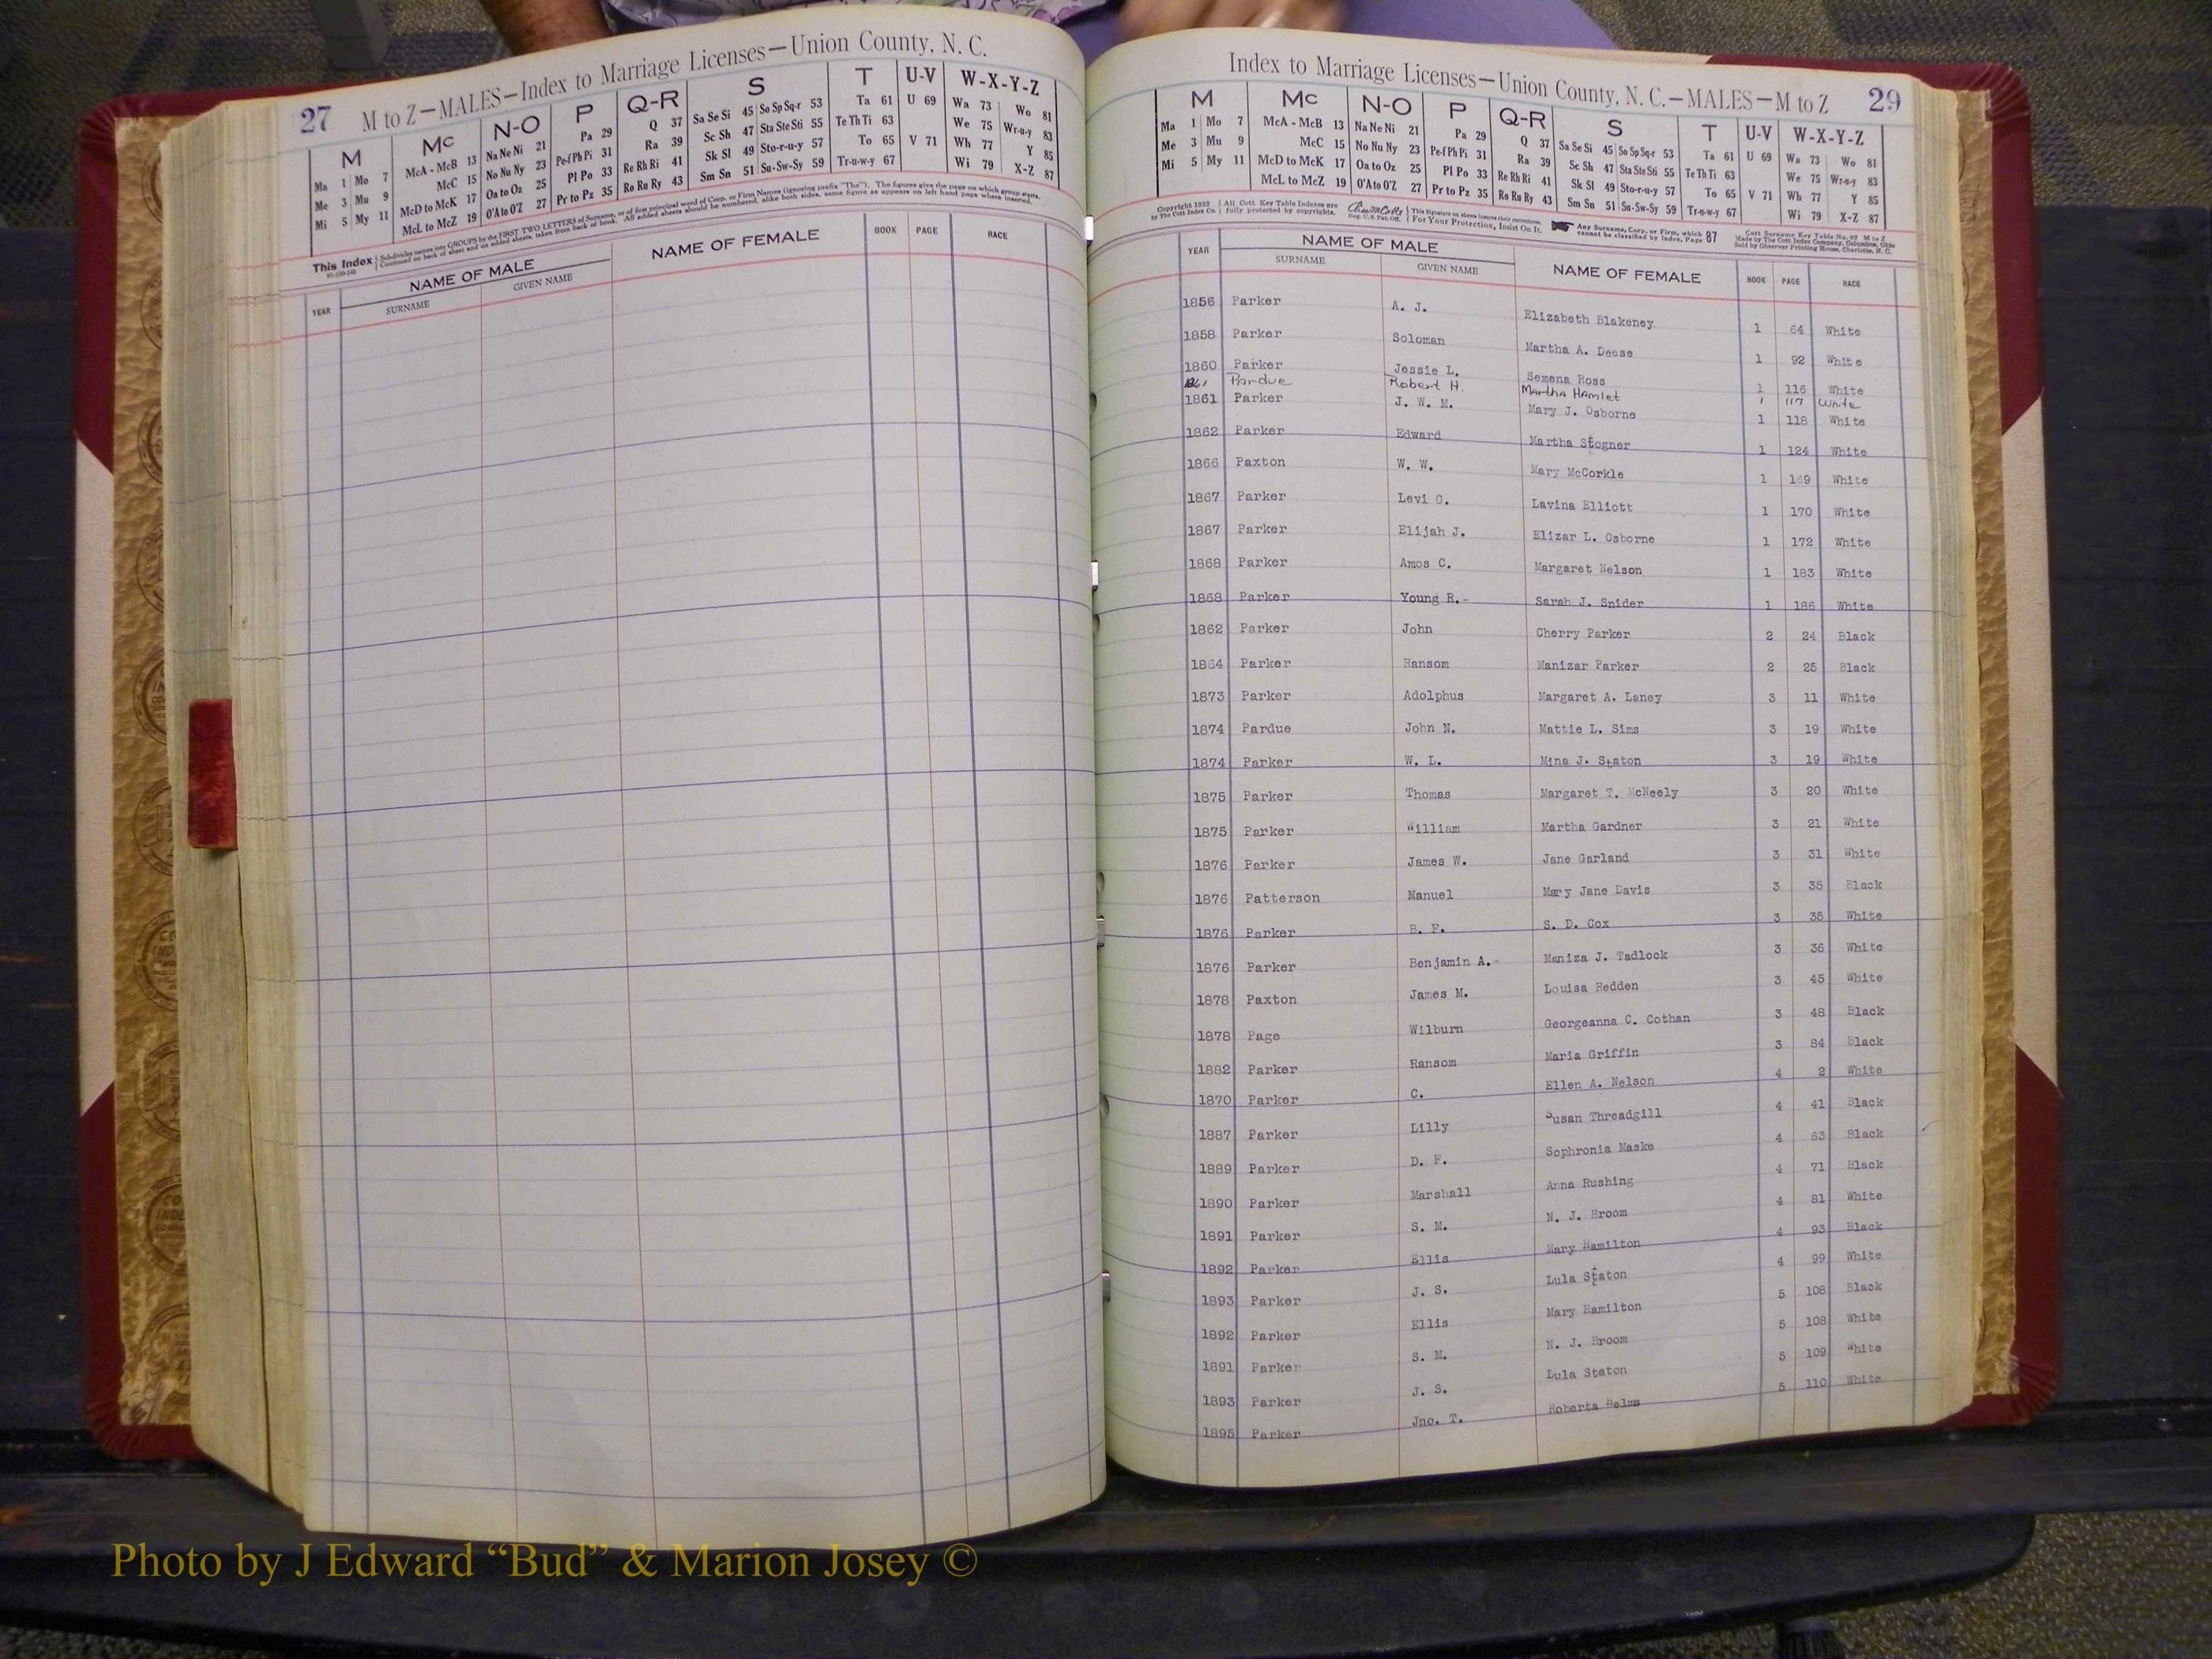 27 M to Z—MALES—Index to Marriage Licenses—Union County, N. C.
M Mc N-O P Q-R S T U-V W-X-Y-Z
Ma 1 Mo 7 McA - McB 13 Na Ne Ni 21 Pa 29 Q 37 Sa Se Si 45 So Sp Sq-r 53 Ta 61 U 69 Wa 73 Wo 81
Me 3 Mu 9 McC 15 No Nu Ny 23 Pe-f Ph Pi 31 Ra 39 Sc Sh 47 Sta Ste Sti 55 Te Th Ti 63 We 75 Wr-u-y 83
Mi 5 My 11 McD to McK 17 Oa to Oz 25 Pl Po 33 Re Rh Ri 41 Sk Sl 49 Sto-r-u-y 57 To 65 V 71 Wh 77 Y 85
McL to McZ 19 O'A to O'Z 27 Pr to Pz 35 Ro Ru Ry 43 Sm Sn 51 Su-Sw-Sy 59 Tr-u-w-y 67 Wi 79 X-Z 87
This Index Subdivides names into GROUPS by the FIRST TWO LETTERS of Surname, or of first principal word of Corp. or Firm Names (ignoring prefix "The"). The figures give the page on which group starts.
Continued on back of sheet and on added sheets, taken from back of book. All added sheets should be numbered, alike both sides, same figure as appears on left hand page where inserted.
YEAR NAME OF MALE NAME OF FEMALE BOOK PAGE RACE
SURNAME GIVEN NAME
Index to Marriage Licenses—Union County, N. C.—MALES—M to Z 29
M Mc N-O P Q-R S T U-V W-X-Y-Z
Ma 1 Mo 7 McA - McB 13 Na Ne Ni 21 Pa 29 Q 37 Sa Se Si 45 So Sp Sq-r 53 Ta 61 U 69 Wa 73 Wo 81
Me 3 Mu 9 McC 15 No Nu Ny 23 Pe-f Ph Pi 31 Ra 39 Sc Sh 47 Sta Ste Sti 55 Te Th Ti 63 We 75 Wr-u-y 83
Mi 5 My 11 McD to McK 17 Oa to Oz 25 Pl Po 33 Re Rh Ri 41 Sk Sl 49 Sto-r-u-y 57 To 65 V 71 Wh 77 Y 85
McL to McZ 19 O'A to O'Z 27 Pr to Pz 35 Ro Ru Ry 43 Sm Sn 51 Su-Sw-Sy 59 Tr-u-w-y 67 Wi 79 X-Z 87
Copyright 1932 by The Cott Index Co. All Cott Key Table Indexes are fully protected by copyrights. For Your Protection, Insist On It. Any Surname, Corp. or Firm, which cannot be classified by Index, Page 87
Cott Surname Key Table No. 97 M to Z Made by The Cott Index Company, Columbus, Ohio Sold by Observer Printing House, Charlotte, N. C.
YEAR NAME OF MALE NAME OF FEMALE BOOK PAGE RACE
SURNAME GIVEN NAME
1856 Parker A. J. Elizabeth Blakeney 1 64 White
1858 Parker Soloman Martha A. Deese 1 92 White
1860 Parker Jessie L. Semena Ross 1 116 White
1861 Pardue Robert H. Martha Hamlet 1 117 White
1861 Parker J. W. M. Mary J. Osborne 1 118 White
1862 Parker Edward Martha Stogner 1 124 White
1866 Paxton W. W. Mary McCorkle 1 169 White
1867 Parker Levi G. Lavina Elliott 1 170 White
1867 Parker Elijah J. Elizar L. Osborne 1 172 White
1868 Parker Amos C. Margaret Nelson 1 183 White
1868 Parker Young R.- Sarah J. Snider 1 186 White
1862 Parker John Cherry Parker 2 24 Black
1864 Parker Ransom Manizar Parker 2 25 Black
1873 Parker Adolphus Margaret A. Laney 3 11 White
1874 Pardue John N. Mattie L. Sims 3 19 White
1874 Parker W. L. Mina J. Staton 3 19 White
1875 Parker Thomas Margaret T. McNeely 3 20 White
1875 Parker William Martha Gardner 3 21 White
1876 Parker James W. Jane Garland 3 31 White
1876 Patterson Manuel Mary Jane Davis 3 35 Black
1876 Parker B. F. S. D. Cox 3 35 White
1876 Parker Benjamin A.- Maniza J. Tadlock 3 36 White
1878 Paxton James M. Louisa Redden 3 45 White
1878 Page Wilburn Georgeanna C. Cothan 3 48 Black
1882 Parker Ransom Maria Griffin 3 84 Black
1870 Parker C. Ellen A. Nelson 4 2 White
1887 Parker Lilly Susan Threadgill 4 41 Black
1889 Parker D. F. Sophronia Maske 4 63 Black
1890 Parker Marshall Anna Rushing 4 71 Black
1891 Parker S. M. N. J. Broom 4 81 White
1892 Parker Ellis Mary Hamilton 4 93 Black
1893 Parker J. S. Lula Staton 4 99 White
1892 Parker Ellis Mary Hamilton 5 108 Black
1891 Parker S. M. N. J. Broom 5 108 White
1893 Parker J. S. Lula Staton 5 109 White
1895 Parker Jno. T. Roberta Helms 5 110 White
Photo by J Edward “Bud” & Marion Josey ©